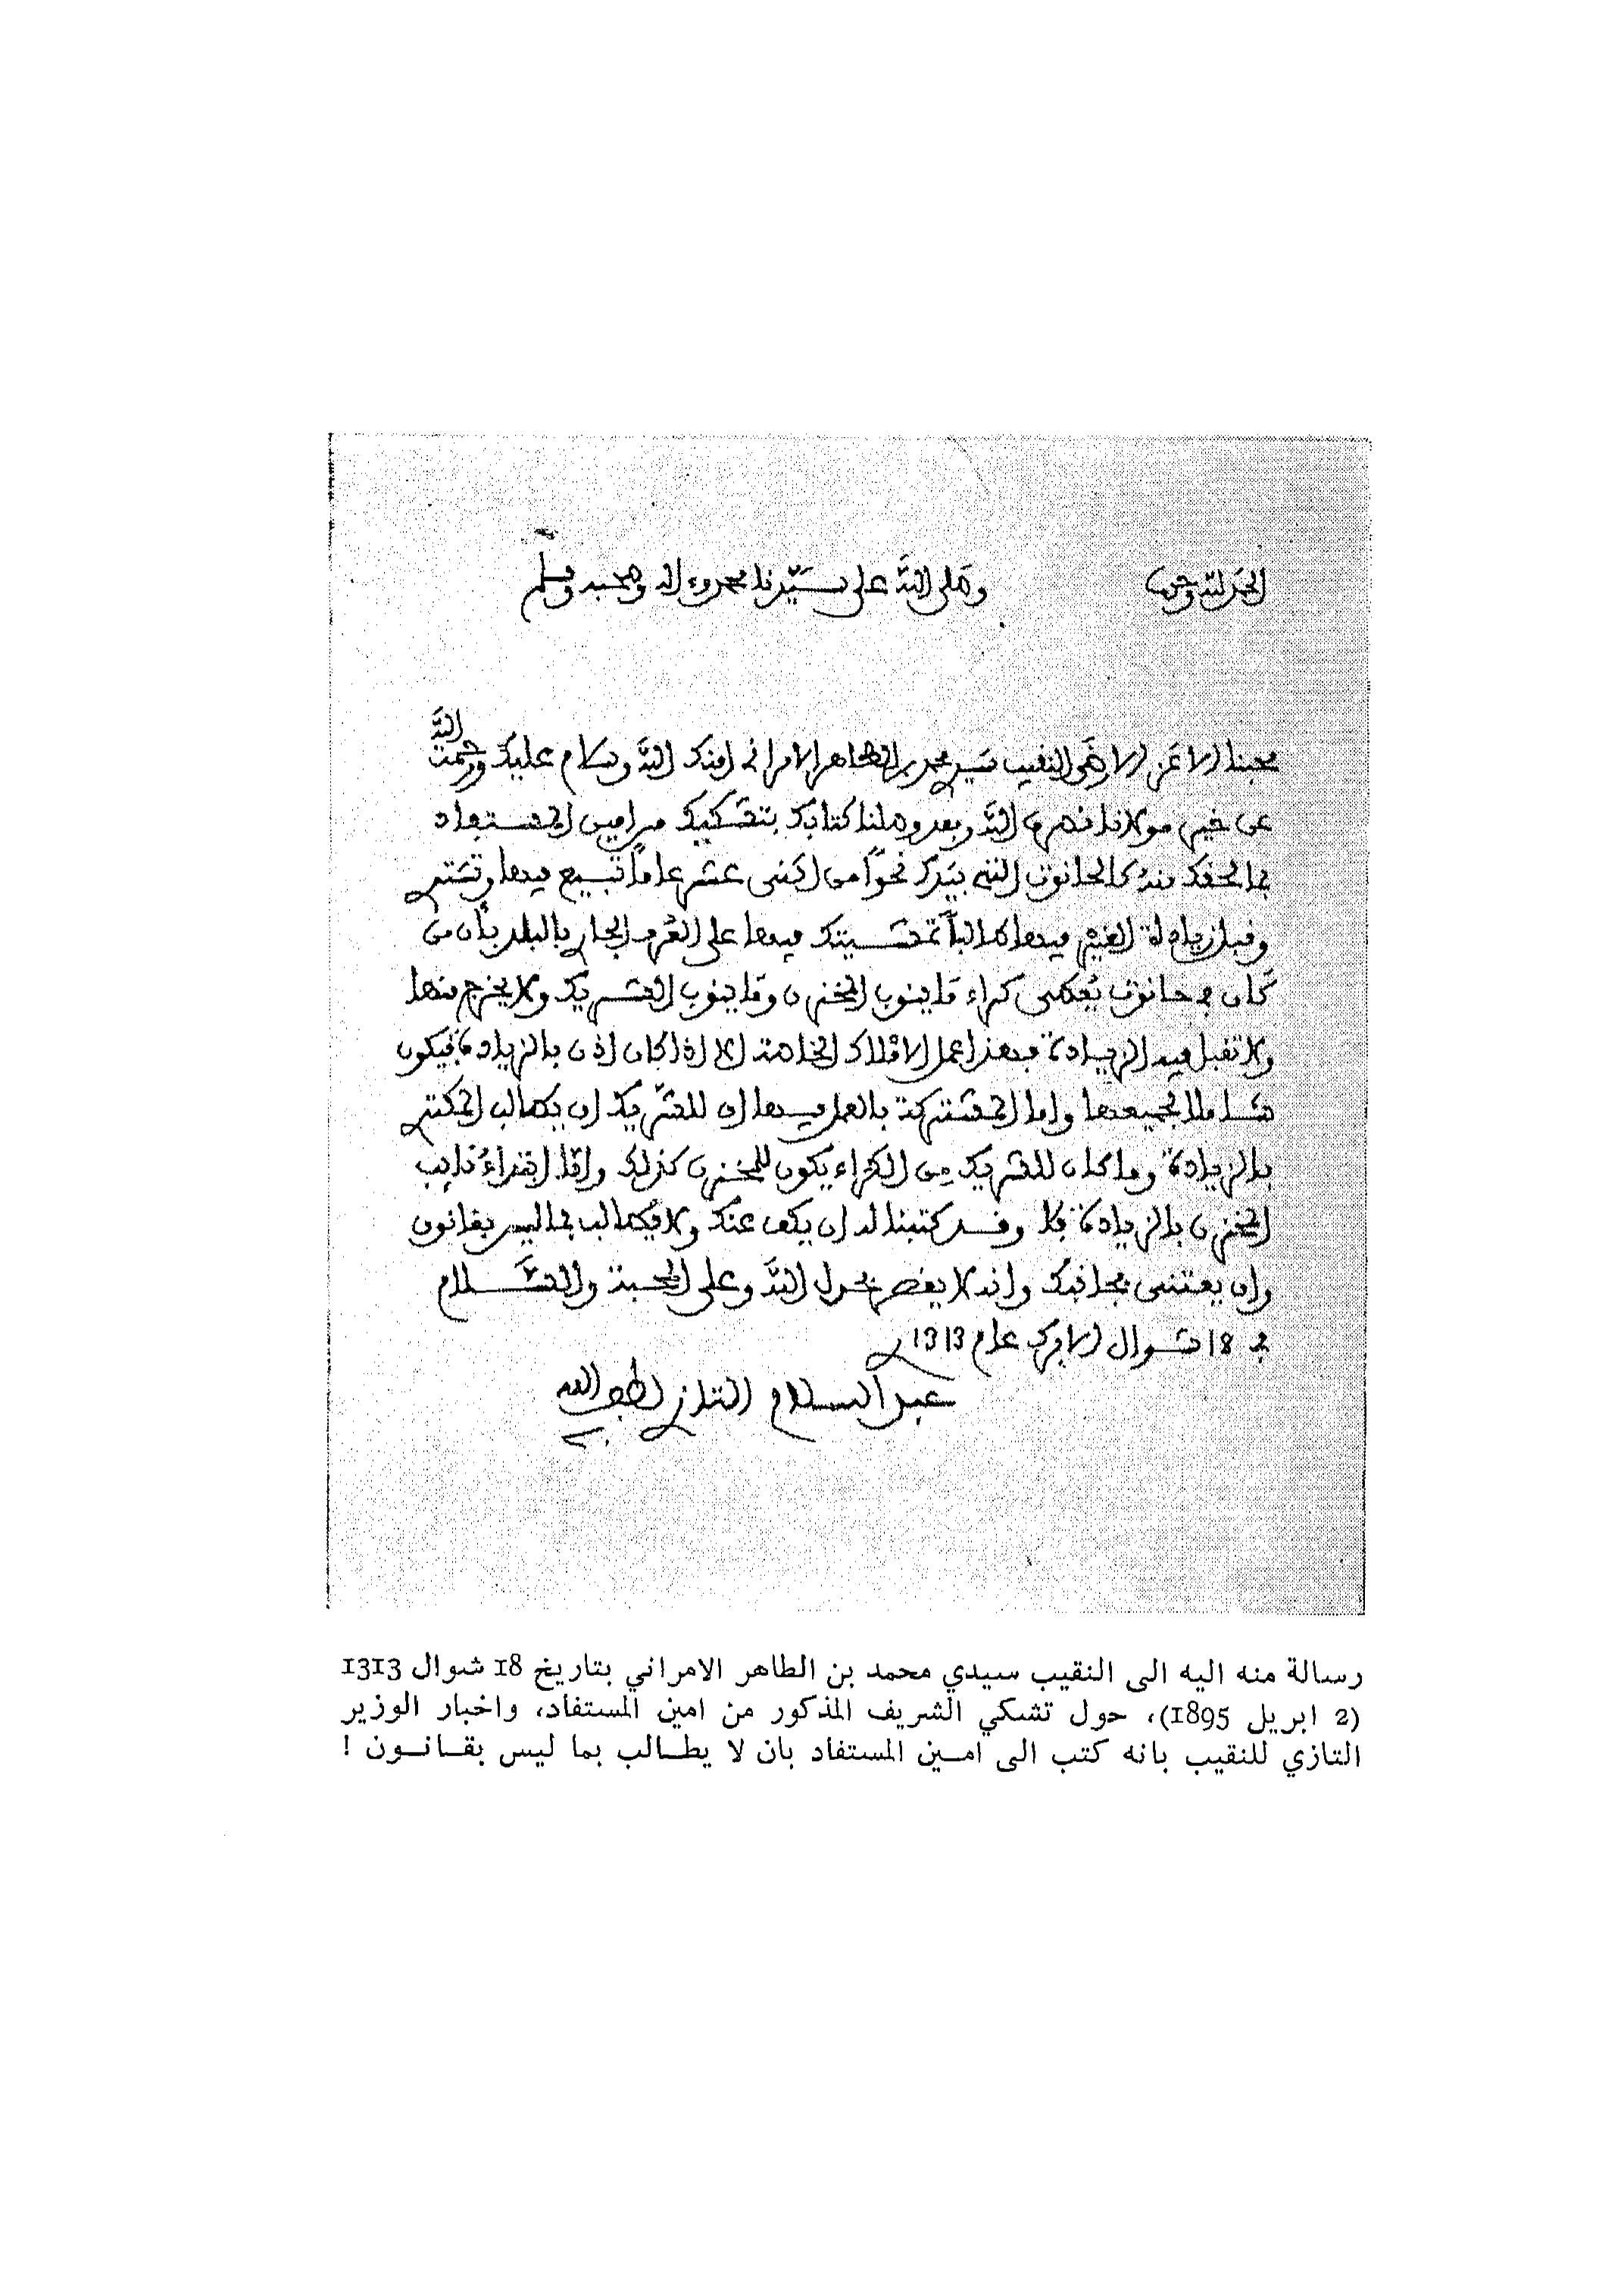 الحمد لله وحده
وصلى الله على سيدنا محمد وءاله وصحبه وسلم
محبنا الاعز الارضى النقيب سيدي محمد بن الطاهر الامراني امنك الله وسلام عليك ورحمت الله
عن خير مولانا نصره الله وبعد وصلنا كتابك بتشكيك من امين المستفاد
بما لحقك منه كالحانوت التي بيدك نحوا من اثنى عشر عاما تبيع فيها وتشتري
وقبل زيادة الغير فيها طالبا تمشيتك فيها على العرف الجاري بالبلد بأن من
كان في حانوت يعطى كراء ما ينوب المخزن وما ينوب الشريك ولا يخرج منها
ولا تقبل فيه الزيادة فهذا عمل الاملاك الخاصة الا اذا كان اذن بالزيادة فيكون
شاملا لجميعها واما المشتركة بالعمل فيها ان للشريك ان يطالب المكتري
بالزيادة وما كان للشريك من الكراء يكون للمخزن كذلك واما ابتداء نايب
المخزن بالزيادة فلا وقد كتبنا له ان يكف عنك ولا يطالب بما ليس بقانون
وان يعتنى بجانبك وانه لا يقصر بحول الله وعلى المحبة والسلام
في 18 شوال الابرك عام 1313
عبد السلام التازي لطف الله به
رسالة منه اليه الى النقيب سيدي محمد بن الطاهر الامراني بتاريخ 18 شوال 1313
(2 ابريل 1895)، حول تشكي الشريف المذكور من امين المستفاد، واخبار الوزير
التازي للنقيب بانه كتب الى امين المستفاد بان لا يطالب بما ليس بقانون !